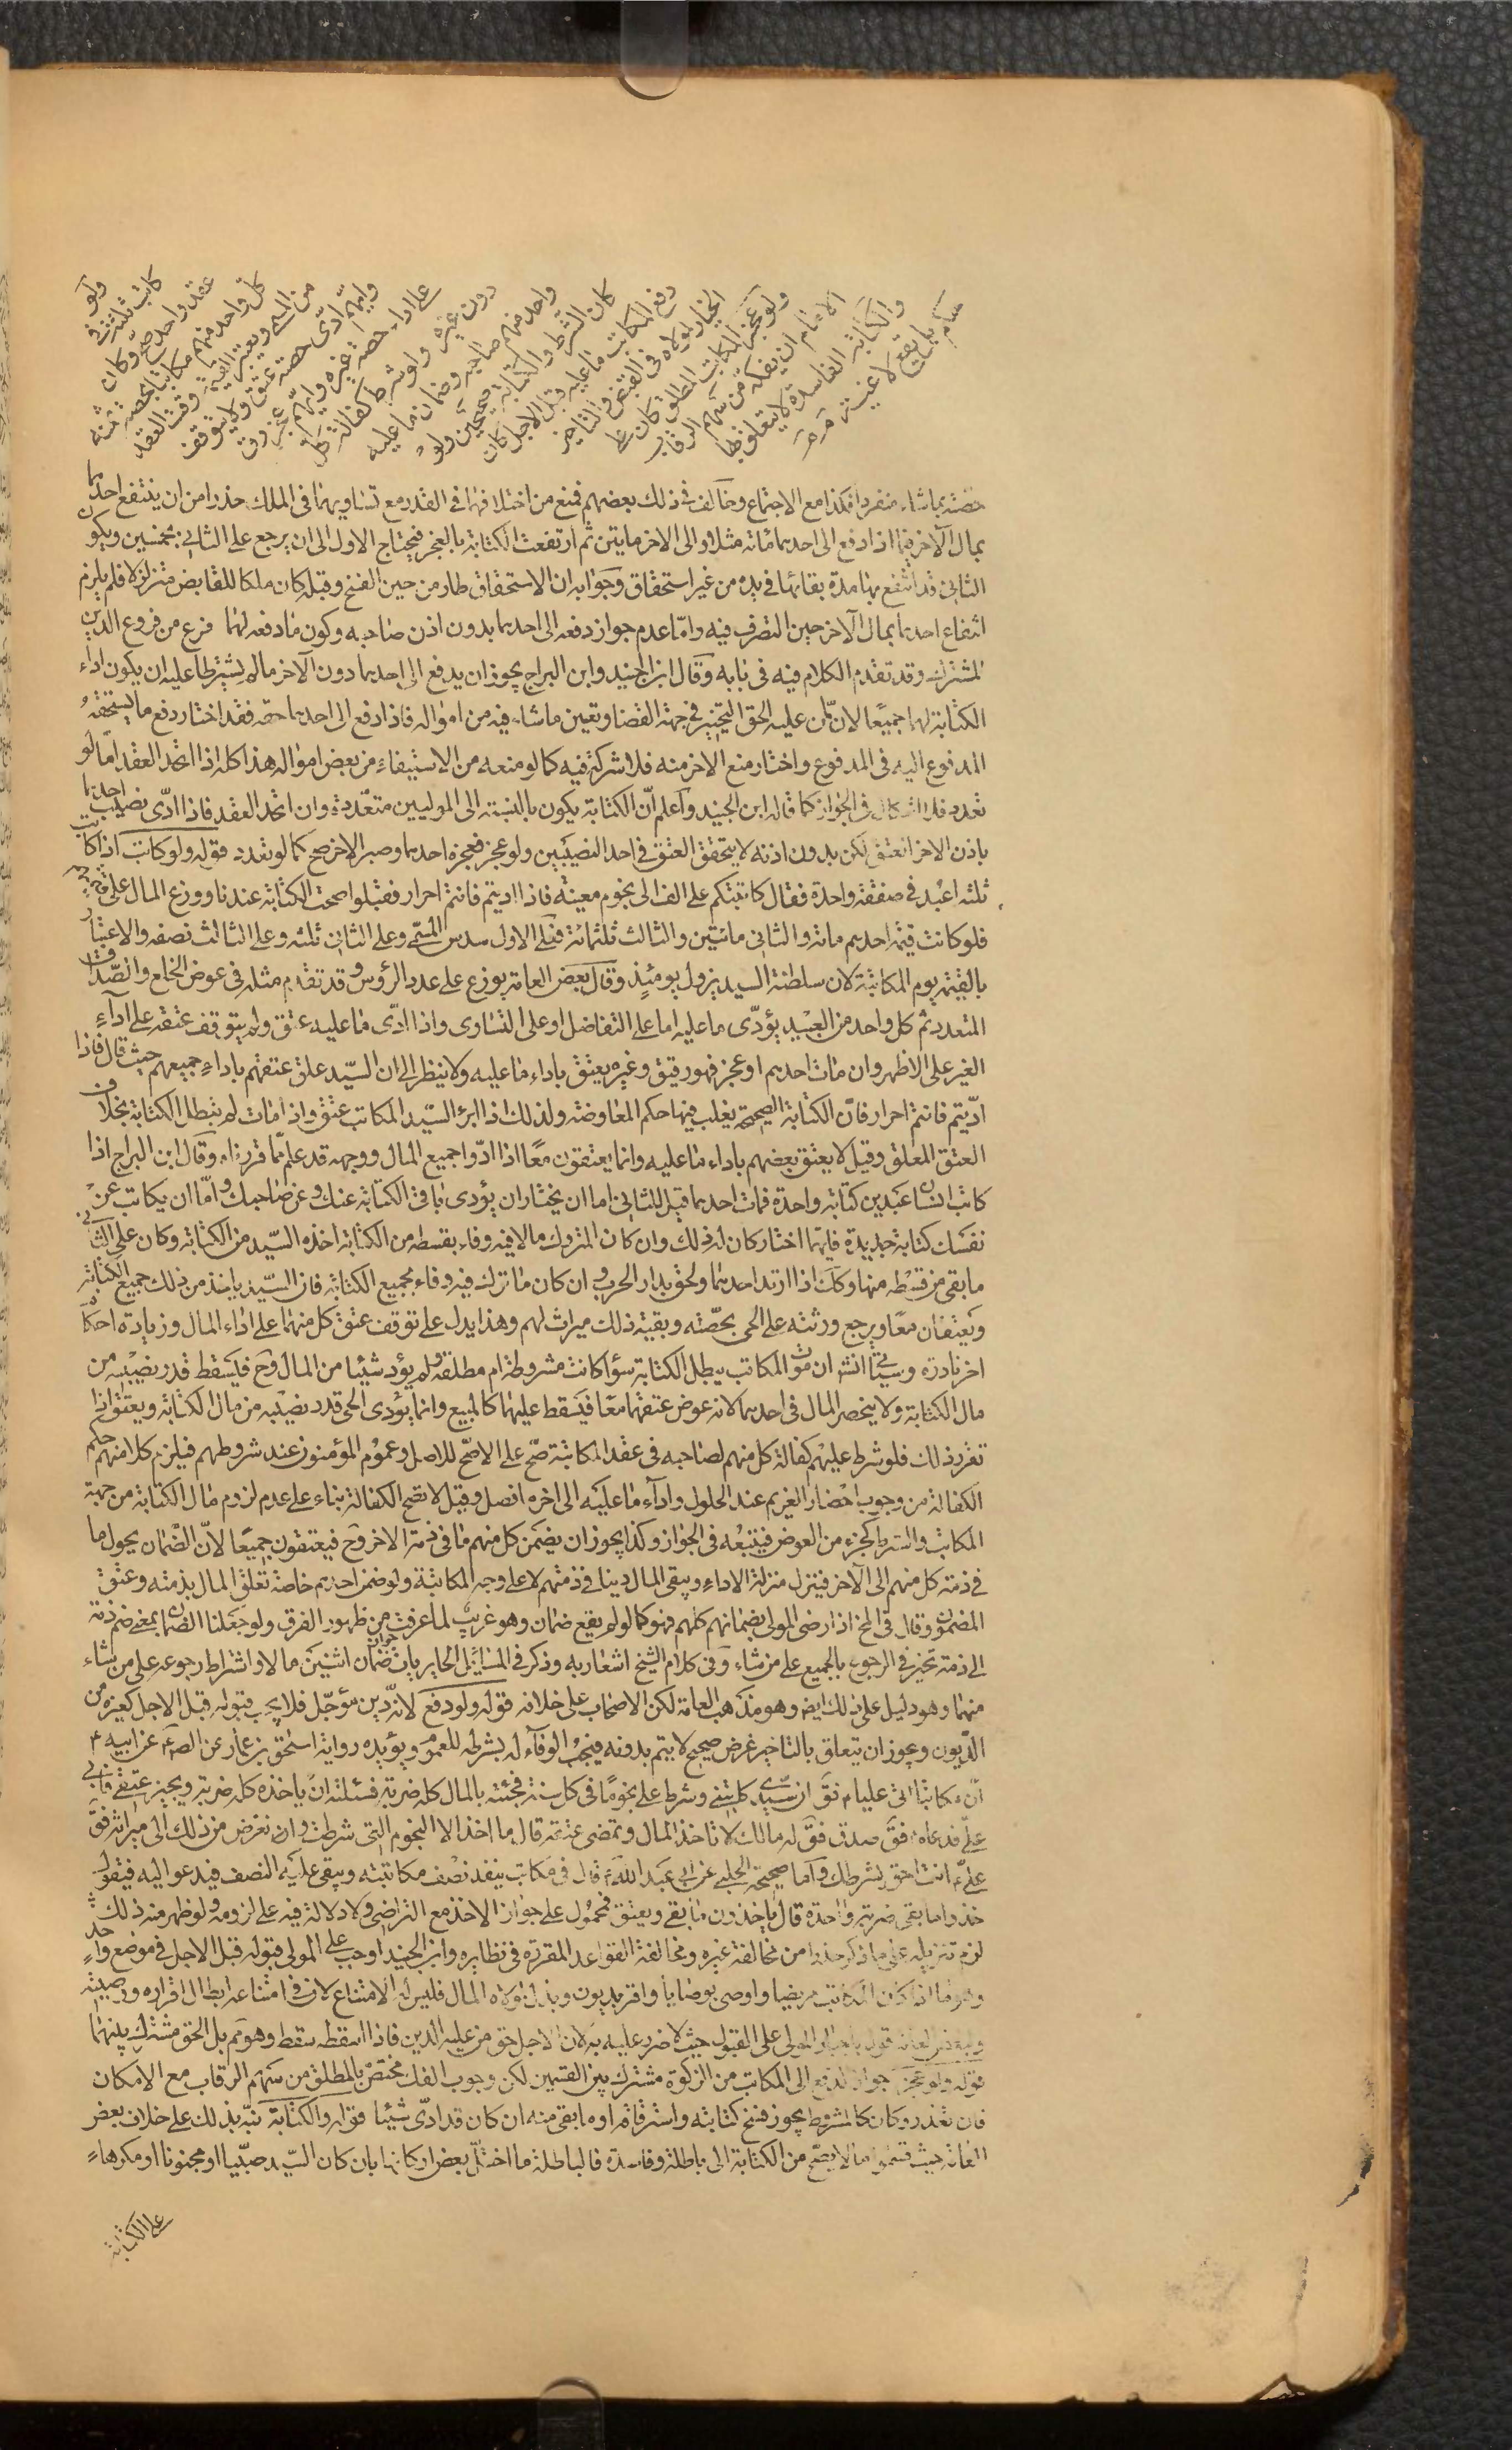 ولو
كاتب ثلثة في
عقد واحد صح وكان
كل واحد منهم مكاتبا بحصة ثمنه
من المسمى ويعتبر القيمة وقت العقد
وايهم ادى حصته عتق ولا يتوقف
على اداء حصة غيره وايهم عجز رق
دون غيره ولو شرط كفالة كل
واحد منهم صاحبه وضمان ما عليه
كان الشرط والكتابة صحيحين ولو
دفع المكاتب ما عليه قبل الاجل كان
الخيار لمولاه في القبض والتاخير
ولو عجز المكاتب المطلق كان على
الامام ان يفكه من سهم الرقاب
والكتابة الفاسدة لا يتعلق بها
حكم بل تقع لاغية
حصته بما شاء منفردا فكذا مع الاجتماع وخالف في ذلك بعضهم فمنع من اختلافهما في القدر مع تساويهما في الملك حذرا من ان ينتفع احدهما
بمال الآخر فيما اذا دفع الى احدهما مائة مثلا والى الاخر مايتين ثم ارتفعت الكتابة بالعجز فيحتاج الاول الى ان يرجع على الثاني بخمسين ويكون
الثاني قد انتفع بها مدة بقائها في يده من غير استحقاق وجوابه ان الاستحقاق طار من حين الفسخ وقبله كان ملكا للقابض متزلزلا فلم يلزم
انتفاع احدهما بمال الآخر حين التصرف فيه واما عدم جواز دفعه الى احدهما بدون اذن صاحبه وكون ما دفعه لهما فرع من فروع الدين
المشترك وقد تقدم الكلام فيه في بابه وقال ابن الجنيد وابن البراج يجوز ان يدفع الى احدهما دون الآخر ما لم يشترطا عليه ان يكون اداء
الكتابة لهما جميعا لان من عليه الحق التخيير في جهة القضا وتعين ما شاء فيه من امواله فاذا دفع الى احدهما حقه فقد اختار دفع ما يستحقه
المدفوع اليه في المدفوع واختار منع الاخر منه فلا شركة فيه كما لو منعه من الاستيفاء من بعض امواله هذا كله اذا اتحد العقد اما لو
تعدد فلا اشكال في الجواز كما قاله ابن الجنيد واعلم ان الكتابة يكون بالنسبة الى الموليين متعددة وان اتحد العقد فاذا ادى نصيب احدهما
باذن الاخر انعتق لكن بدون اذنه لا يتحقق العتق في احد النصيبين ولو عجز فعجزه احدهما وصبر الاخر صح كما لو تعدد قوله ولو كاتب اذا كاتب
ثلثه اعبد في صفقة واحدة فقال كاتبتكم على الف الى نجوم معينة فاذا اديتم فانتم احرار فقبلوا صحت الكتابة عندنا ووزع المال على قيمتهم
فلو كانت قيمة احدهم مائة والثاني مائتين والثالث ثلثمائة فعلى الاول سدس المسمى وعلى الثاني ثلثه وعلى الثالث نصفه والاعتبار
بالقيمة يوم المكاتبة لان سلطنة السيد يزول يومئذ وقال بعض العامة يوزع على عدد الرؤس وقد تقدم مثله في عوض الخلع والصداق
المتعدد ثم كل واحد من العبيد يؤدى ما عليه اما على التفاضل او على التساوى واذا ادى ما عليه عتق ولم يتوقف عتقه على اداء
الغير على الاظهر وان مات احدهم او عجز فهو رقيق وغيره يعتق باداء ما عليه ولا ينظر الى ان السيد علق عتقهم باداء جميعهم حيث قال فاذا
اديتم فانتم احرار فان الكتابة الصحيحة يغلب فيها حكم المعاوضة ولذلك اذا ابرء السيد المكاتب عتق واذا مات لم تبطل الكتابة بخلاف
العتق المعلق وقيل لا يعتق بعضهم باداء ما عليه وانما يعتقون معا اذا ادوا جميع المال ووجهه قد علم مما قررناه وقال ابن البراج اذا
كاتب انسان عبدين كتابة واحدة فمات احدهما قيل للثاني اما ان يختار ان يؤدى باقي الكتابة عنك وعن صاحبك واما ان يكاتب عن
نفسك كتابة جديدة فايهما اختار كان له ذلك وان كان المتروك مالا فيه وفاء بقسطه من الكتابة اخذه السيد من الكتابة وكان على الثاني
ما بقى من قسطه منها وكك اذا ارتد احدهما ولحق بدار الحرب وان كان ما ترك فيه وفاء بجميع الكتابة فان السيد ياخذ من ذلك جميع الكتابة
ويعتقان معا ويرجع ورثته على الحى بحصته وبقية ذلك ميراث لهم وهذا يدل على توقف عتق كل منهما على اداء المال وزيادة احكام
اخر نادرة وسياتي انش ان موت المكاتب يبطل الكتابة سواء كانت مشروطة ام مطلقة ولم يؤد شيئا من المال وح فيسقط قدر نصيبه من
مال الكتابة ولا ينحصر المال في احدهما لانه عوض عتقهما معا فيسقط عليهما كالمبيع وانما يؤدى الحى قدر نصيبه من مال الكتابة ويعتق اذا
تقرر ذلك فلو شرط عليهم كفالة كل منهم لصاحبه في عقد المكاتبة صح على الاصح للاصل وعموم المؤمنون عند شروطهم فيلزم كلا منهم حكم
الكفالة من وجوب احضار الغريم عند الحلول واداء ما عليه الى اخره افصل وقيل لا تصح الكفالة بناء على عدم لزوم مال الكتابة من جهة
المكاتب والشرط كجزء من العوض فيتبعه في الجواز وكذا يجوز ان يضمن كل منهم ما في ذمة الاخر وح فيعتقون جميعا لان الضمان يحول ما
في ذمة كل منهم الى الآخر فيتنزل منزلة الاداء ويبقى المال دينا في ذمتهم لا على وجه المكاتبة ولو ضمن احدهم خاصة تعلق المال بذمته وعتق
المضمون وقال في الخ اذا رضى المولى بضمانهم كلهم فهو كما لو لم يقع ضمان وهو غريب لما عرفت من ظهور الفرق ولو جعلنا الضمان بمعنى ضم ذمة
الى ذمة تخير في الرجوع بالجميع على من شاء وفي كلام الشيخ اشعار به وذكر في المسائل الحايريات جواز ضمان اثنين مالا واشتراط رجوعه على من شاء
منهما وهو دليل على ذلك ايض وهو مذهب العامة لكن الاصحاب على خلافه قوله ولو دفع لانه دين مؤجل فلا يجب قبوله قبل الاجل كغيره من
الديون وجوز ان يتعلق بالتاخير غرض صحيح لا يتم بدونه فيجب الوفاء له بشرطه للعموم ويؤيده رواية اسحق بن عمار عن الصء عن ابيه ع
ان مكاتبا اتى عليا ع فق ان سيدى كاتبني وشرط على نجوما في كل سنة فجئته بالمال كله ضربة فسئلته ان ياخذه كله ضربة ويجيز عتقي فابى
على فدعاه فق صدق فق له مالك لا تاخذ المال وتمضى عتقه قال ما اخذ الا النجوم التى شرطت وان تعرض من ذلك الى ميراثه فق
على ع انت احق بشرطك واما صحيحة الحلبي عن ابي عبد الله ع قال في مكاتب ينقد نصف مكاتبته ويبقى عليه النصف فيدعو اليه فيقول
خذوا ما بقى ضربة واحدة قال ياخذون ما بقى ويعتق فمحمول على جواز الاخذ مع التراضى ولا دلالة فيه على لزومه ولو ظهر منه ذلك
لزم تنزيله على ما ذكر حذرا من مخالفة غيره ومخالفة القواعد المقررة في نظايره وابن الجنيد اوجب على المولى قبوله قبل الاجل في موضع واحد
وهو ما اذا كان المكاتب مريضا واوصى بوصايا واقر بديون وبذل لمولاه المال فليس له الامتناع لان في امتناعه ابطال اقراره ووصيته
ولبعض العامة قول باجبار المولى على القبول حيث لا ضرر عليه به لان الاجل حق من عليه الدين فاذا اسقطه سقط وهو مم بل الحق مشترك بينهما
قوله ولو عجز جواز الدفع الى المكاتب من الزكوة مشترك بين القسمين لكن وجوب الفك مختص بالمطلق من سهم الرقاب مع الامكان
فان تعذر وكان كالمشروط يجوز فسخ كتابته واسترقاقه او ما بقى منه ان كان قد ادى شيئا قوله والكتابة نبه بذلك على خلاف بعض
العامة حيث قسموا ما لا يصح من الكتابة الى باطلة وفاسدة فالباطلة ما اختل بعض اركانها بان كان السيد صبيا او مجنونا او مكرها
على الكتابة